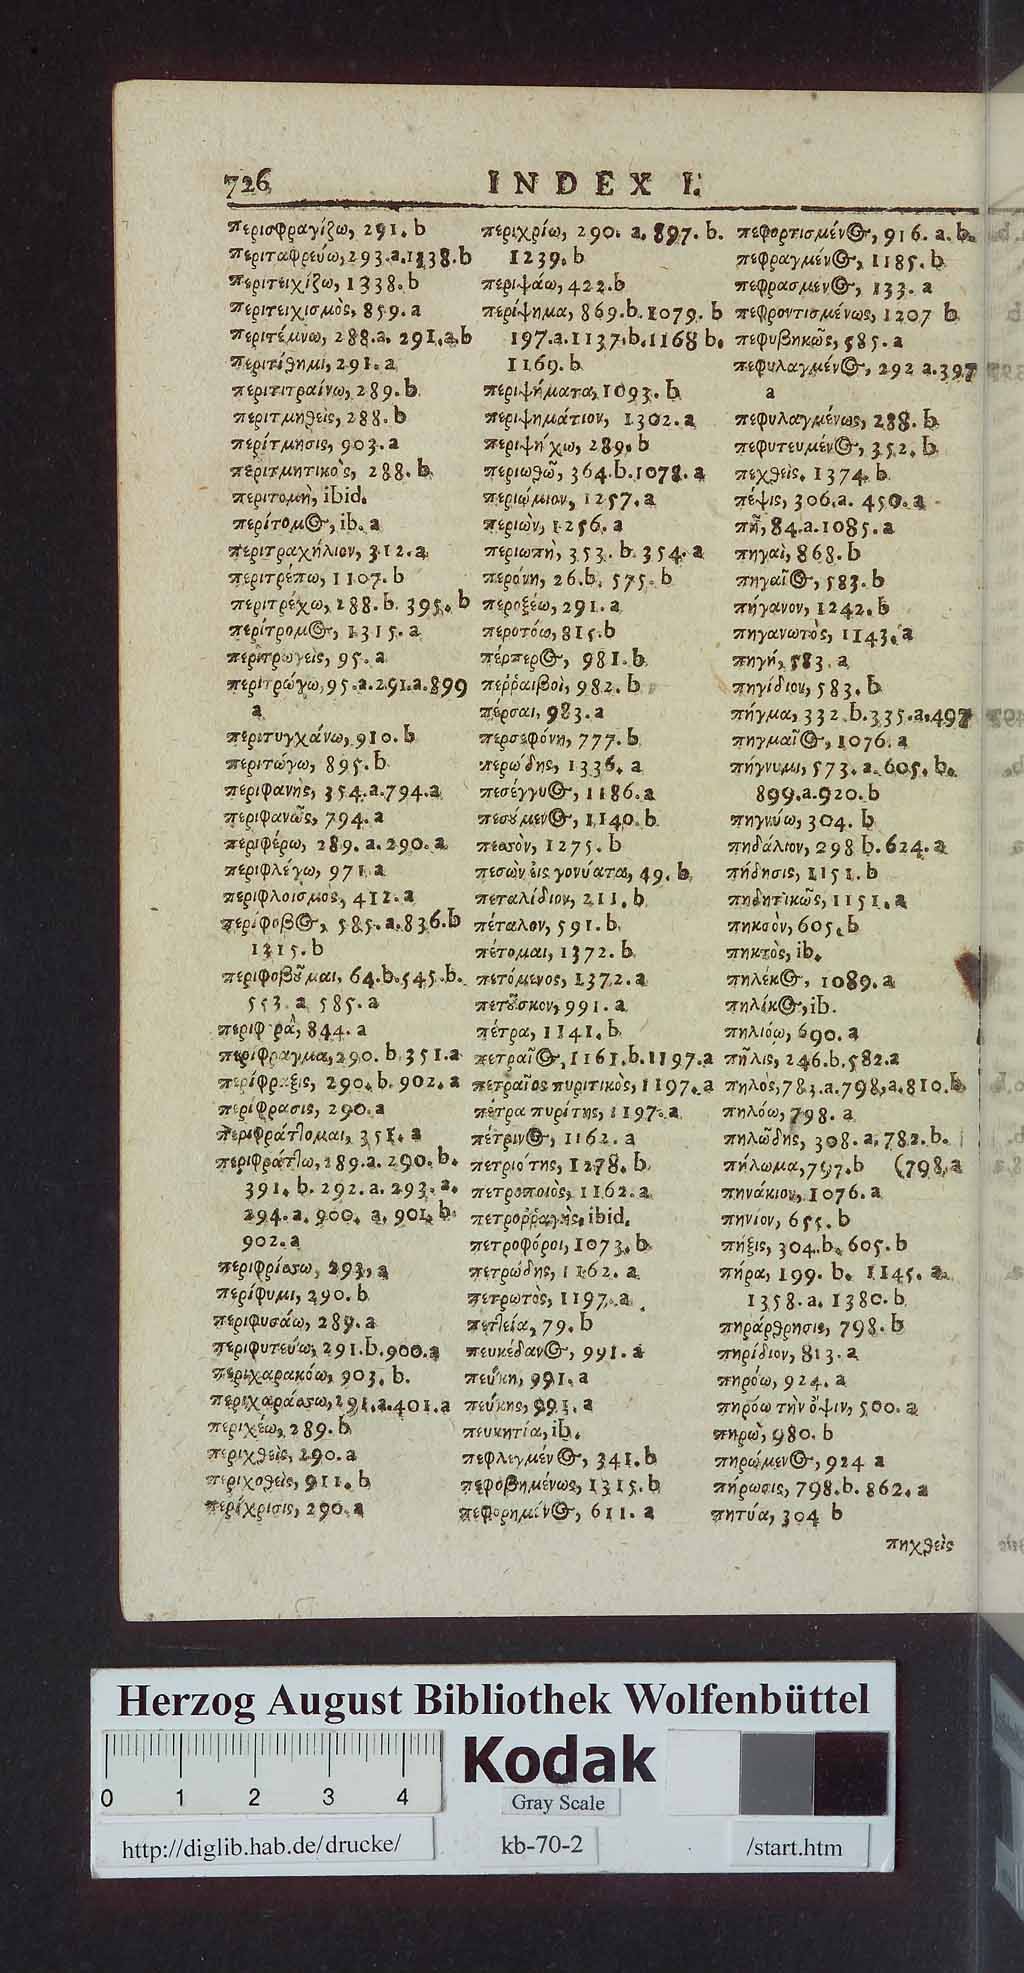 726
INDEX I.
περισφραγίζω, 291. b
περιταφρεύω, 293. a. 1338. b
περιτειχίζω, 1338. b
περιτειχισμὸς, 859. a
περιτέμνω, 288. a. 291. a. b
περιτίθημι, 291. a
περιτιτραίνω, 289. b
περιτμηθεὶς, 288. b
περίτμησις, 903. a
περιτμητικὸς, 288. b
περιτομὴ, ibid.
περίτομος, ib. a
περιτραχήλιον, 312. a
περιτρέπω, 1107. b
περιτρέχω, 288. b. 395. b
περίτρομος, 1315. a
περιτρωγεὶς, 95. a
περιτρώγω, 95. a. 291. a. 899
a
περιτυγχάνω, 910. b
περιτώγω, 895. b
περιφανὴς, 354. a. 794. a
περιφανῶς, 794. a
περιφέρω, 289. a. 290. a
περιφλέγω, 971 a
περιφλοισμὸς, 412. a
περίφοβος, 585. a. 836. b
1315. b
περιφοβοῦμαι, 64. b. 545. b.
553. a 585. a
844. a
περίφραγμα, 290. b. 351. a
περίφραξις, 290. b. 902. a
περίφρασις, 290. a
περιφράττομαι, 351. a
περιφράττω, 289. a. 290. b.
391. b. 292. a. 293. a.
294. a. 900. a. 901. b
902. a
περιφρίσσω, 293. a
περίφυμι, 290. b
περιφυσάω, 289. a
περιφυτεύω, 291. b. 900. a
περιχαρακόω, 903. b.
περιχαράσσω, 291. a. 401. a
περιχέω, 289. b
περιχθεὶς, 290. a
περιχοθεὶς, 911. b
περίχρισις, 290. a
περιχρίω, 290. a. 897. b.
1239. b
περιψάω, 422. b
περίψημα, 869. b. 1079. b
197. a. 1137. b. 1168 b.
1169. b
περιψήματα, 1093. b
περιψημάτιον, 1302. a
περιψήχω, 289. b
περιωθῶ, 364. b. 1078. a
περιώμιον, 1257. a
περιὼν, 1256. a
περιωπὴ, 353. b. 354. a
περόνη, 26. b. 575. b
περοξέω, 291. a
περοτόω, 815. b
πέρπερος, 981. b
περῤῥαιβοὶ, 982. b
πέρσαι, 983. a
περσεφόνη, 777. b
περώδης, 1336. a
πεσέγγυος, 1186. a
πεσούμενος, 1140. b
πεσσὸν, 1275. b
πεσὼν εἰς γονύατα, 49. b
πεταλίδιον, 211. b
πέταλον, 591. b
πέτομαι, 1372. b
πετόμενος, 1372. a
πετοῦσκον, 991. a
πέτρα, 1141. b
πετραῖος, 1161. b. 1197. a
πετραῖος πυριτικὸς, 1197. a
πέτρα πυρίτης, 1197. a
πέτρινος, 1162. a
πετριότης, 1278. b
πετροποιὸς, 1162. a
πετροῤῥαγὴς, ibid.
πετροφόροι, 1073. b
πετρώδης, 1162. a
πετρωτὸς, 1197. a
πεττεία, 79. b
πευκέδανος, 991. a
πεύκη, 991. a
πεύκης, 991. a
πευκητία, ib.
πεφλεγμένος, 341. b
πεφοβημένως, 1315. b
πεφορημένος, 611. a
πεφορτισμένος, 916. a. b.
πεφραγμένος, 1185. b
πεφρασμένος, 133. a
πεφροντισμένως, 1207 b
πεφυβηκῶς, 585. a
πεφυλαγμένος, 292 a. 397
a
πεφυλαγμένως, 288. b
πεφυτευμένος, 352. b
πεχθεὶς, 1374. b
πέψις, 306. a. 450. a
πῆ, 84. a. 1085. a
πηγαὶ, 868. b
πηγαῖος, 583. b
πήγανον, 1242. b
πηγανωτὸς, 1143. a
πηγή, 583. a
πηγίδιον, 583. b
πήγμα, 332. b. 335. a. 497
πηγμαῖος, 1076. a
πήγνυμι, 573. a. 605. b.
899. a. 920. b
πηγνύω, 304. b
πηδάλιον, 298 b. 624. a
πήδησις, 1151. b
πηδητικῶς, 1151. a
πηκσὸν, 605. b
πηκτὸς, ib.
πηλέκος, 1089. a
πηλίκος, ib.
πηλιόω, 690. a
πῆλις, 246. b. 582. a
πηλὸς, 783. a. 798. a. 810. b
πηλόω, 798. a
πηλώδης, 308. a. 782. b.
πήλωμα, 797. b (798. a
πηνάκιον, 1076. a
πηνίον, 655. b
πήξις, 304. b. 605. b
πήρα, 199. b. 1145. a
1358. a. 1380. b
πηράρθρησις, 798. b
πηρίδιον, 813. a
πηρόω, 924. a
πηρόω τὴν ὄψιν, 500. a
πηρὼ, 980. b
πηρώμενος, 924 a
πήρωσις, 798. b. 862. a
πητύα, 304 b
πηχθεὶς
Herzog August Bibliothek Wolfenbüttel
0 1 2 3 4
Kodak
Gray Scale
http://diglib.hab.de/drucke/
kb-70-2
/start.htm